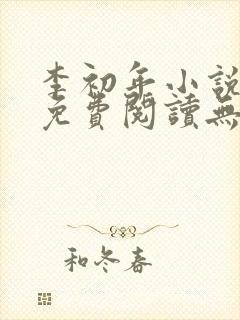 李初年小說
免費閱讀無
和冬春